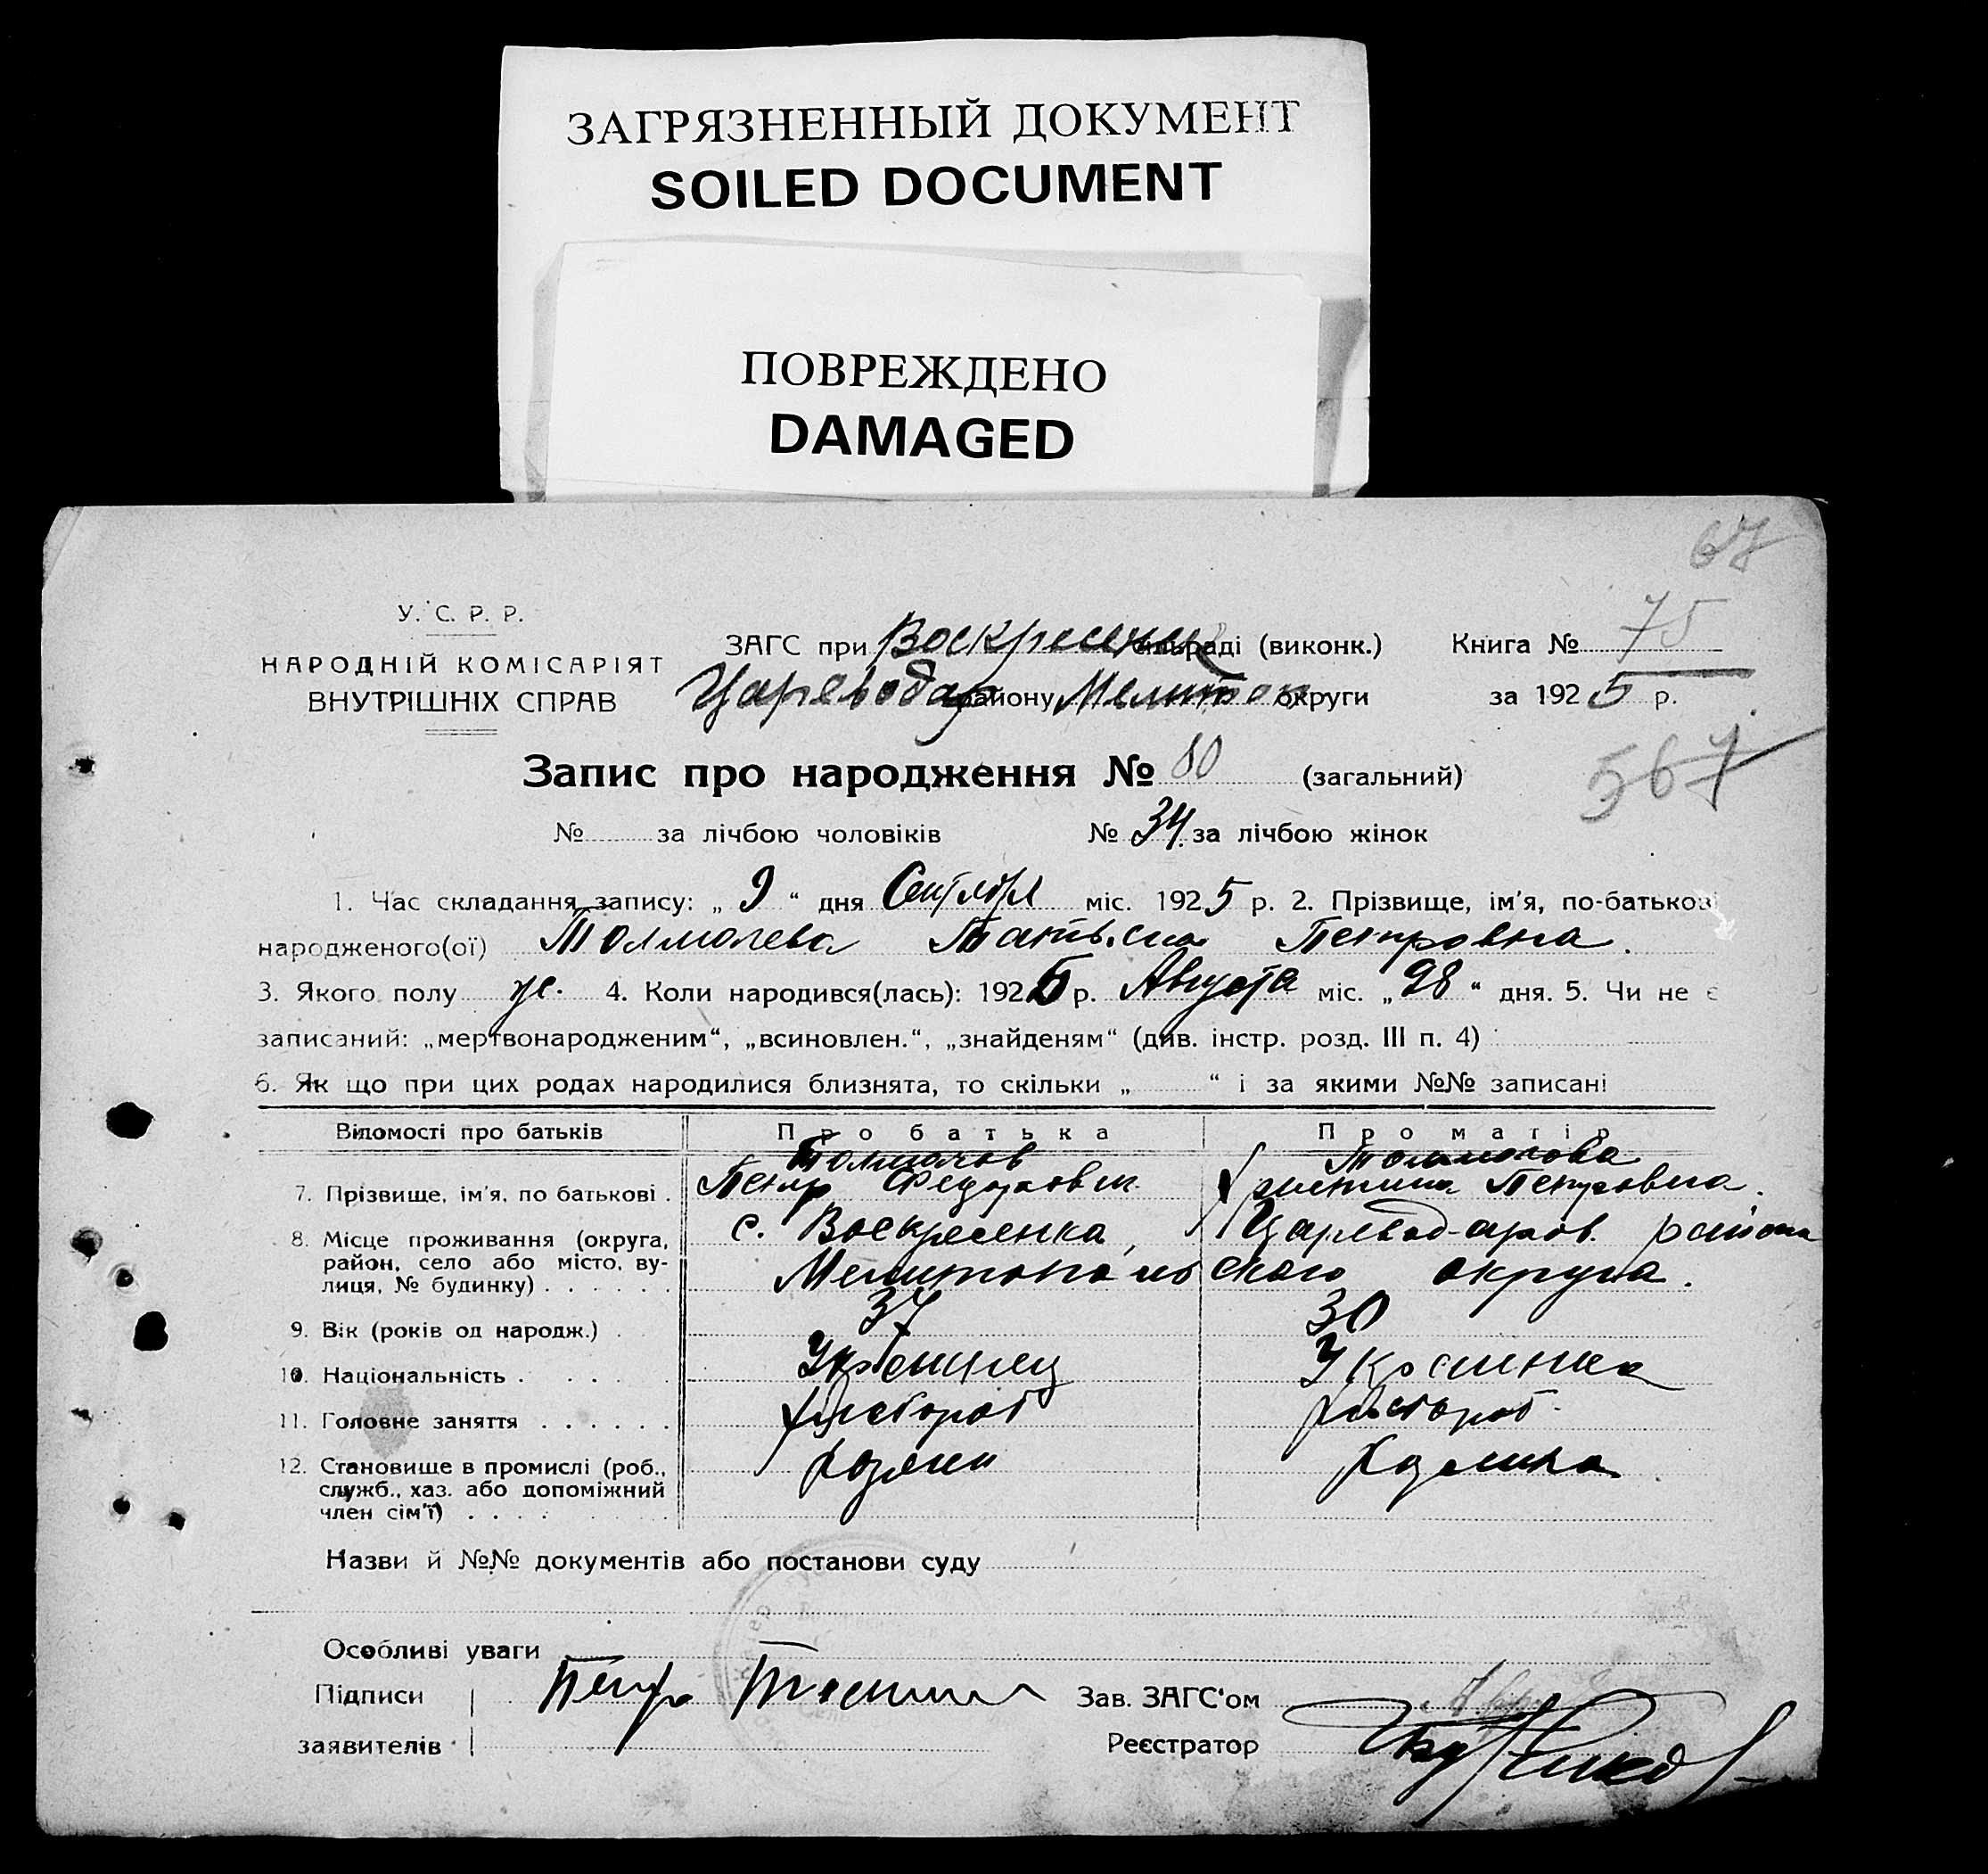 ЗАГРЯЗНЕННЫЙ ДОКУМЕНТ
SOILED DOCUMENT
ПОВРЕЖДЕНО
DAMAGED
67
У. С. Р. Р.
НАРОДНІЙ КОМІСАРІЯТ
ВНУТРІШНІХ СПРАВ
ЗАГС при Воскресенк сільраді (виконк.) Книга № 75
Цареводар району Мелитоп округи за 1925 р.
567
Запис про народження № 80 (загальний)
№ за лічбою чоловіків № 34 за лічбою жінок
1. Час складання запису: „ 9 “ дня Сентября міс. 1925 р. 2. Прізвище, ім'я, по-батькові
народженого(ої) Толмачева Татьяна Петровна.
3. Якого полу ж. 4. Коли народився(лась): 1925 р. Августа міс. „28“ дня. 5. Чи не є
записаний: „мертвонародженим“, „всиновлен.“, „знайденям“ (див. інстр. розд. III п. 4)
6. Як що при цих родах народилися близнята, то скільки „ “ і за якими №№ записані
Відомості про батьків Про батька Про матір
Толмачов Толмачова
7. Прізвище, ім'я, по батькові . Петр Федорович Христина Петровна.
8. Місце проживання (округа, с. Воскресенка, Царевод-аров. района
район, село або місто, вулиця, № будинку) . . . . . . Мелитопольского округа.
9. Вік (років од народж.) . 37 30
10. Національність . . . . . Украинец Украинка
11. Головне заняття . . . . . . хлебороб хлебороб
12. Становище в промислі (роб., хозяин хозяика
служб., хаз. або допоміжний
член сім'ї) . . . .
Назви й №№ документів або постанови суду
Особливі уваги
Підписи Петр Зав. ЗАГС'ом
заявителів Реєстратор